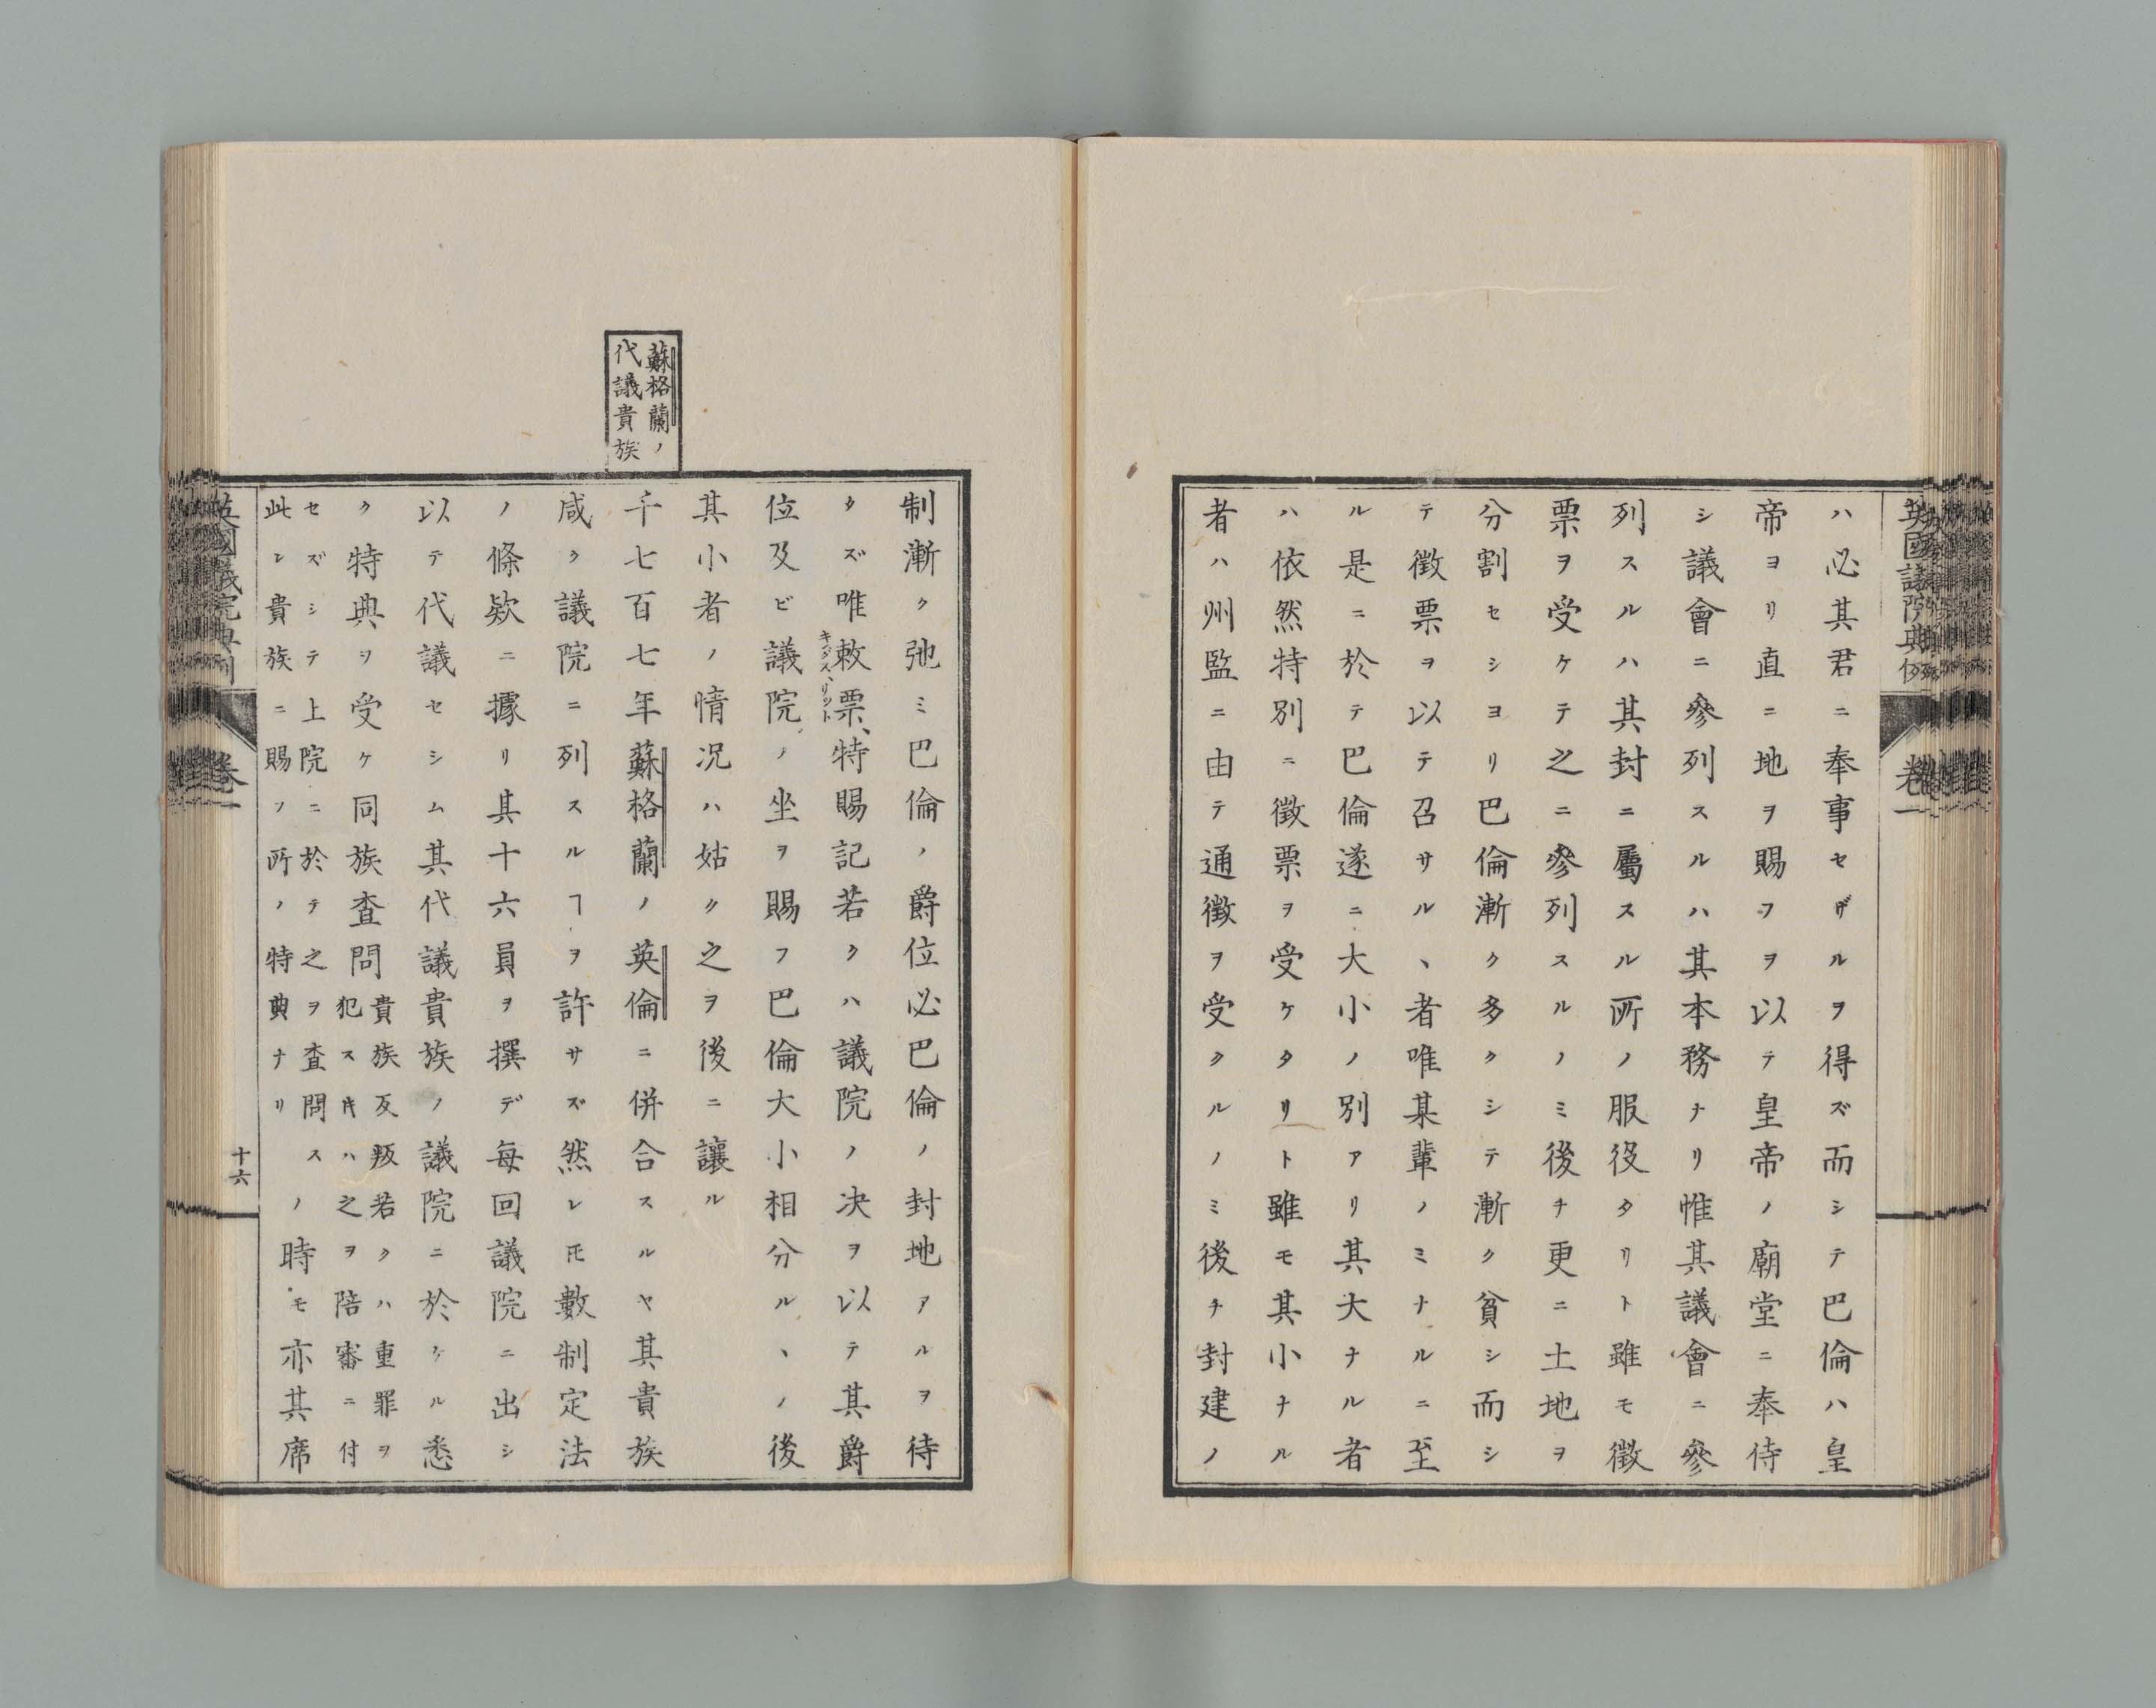 英國議院典例 卷一
ハ必其君ニ奉事セザルヲ得ズ而シテ巴倫ハ皇
帝ヨリ直ニ地ヲ賜フヲ以テ皇帝ノ廟堂ニ奉待
シ議會ニ參列スルハ其本務ナリ惟其議會ニ參
列スルハ其封ニ屬スル所ノ服役タリト雖モ徵
票ヲ受ケテ之ニ參列スルノミ後チ更ニ土地ヲ
分割セシヨリ巴倫漸ク多クシテ漸ク貧シ而シ
テ徵票ヲ以テ召サルヽ者唯某輩ノミナルニ至
ル是ニ於テ巴倫遂ニ大小ノ別アリ其大ナル者
ハ依然特別ニ徵票ヲ受ケタリト雖モ其小ナル
者ハ州監ニ由テ通徵ヲ受クルノミ後チ封建ノ
制漸ク弛ミ巴倫ノ爵位必巴倫ノ封地アルヲ待
タズ唯敕票、特賜記若クハ議院ノ决ヲ以テ其爵
キングス、リット
位及ビ議院ノ坐ヲ賜フ巴倫大小相分ルヽノ後
其小者ノ情况ハ姑ク之ヲ後ニ讓ル
蘇格蘭ノ
代議貴族
千七百七年蘇格蘭ノ英倫ニ併合スルヤ其貴族
咸ク議院ニ列スルヿヲ許サズ然レ𪜈數制定法
ノ條欵ニ據リ其十六員ヲ撰デ每回議院ニ出シ
以テ代議セシム其代議貴族ノ議院ニ於ケル悉
ク特典ヲ受ケ同族査問
貴族反叛若クハ重罪ヲ
犯スキハ之ヲ陪審ニ付
セズシテ上院ニ於テ之ヲ査問ス
此レ貴族ニ賜フ所ノ特典ナリ
ノ時モ亦其席
英國議院典例 卷一 十六